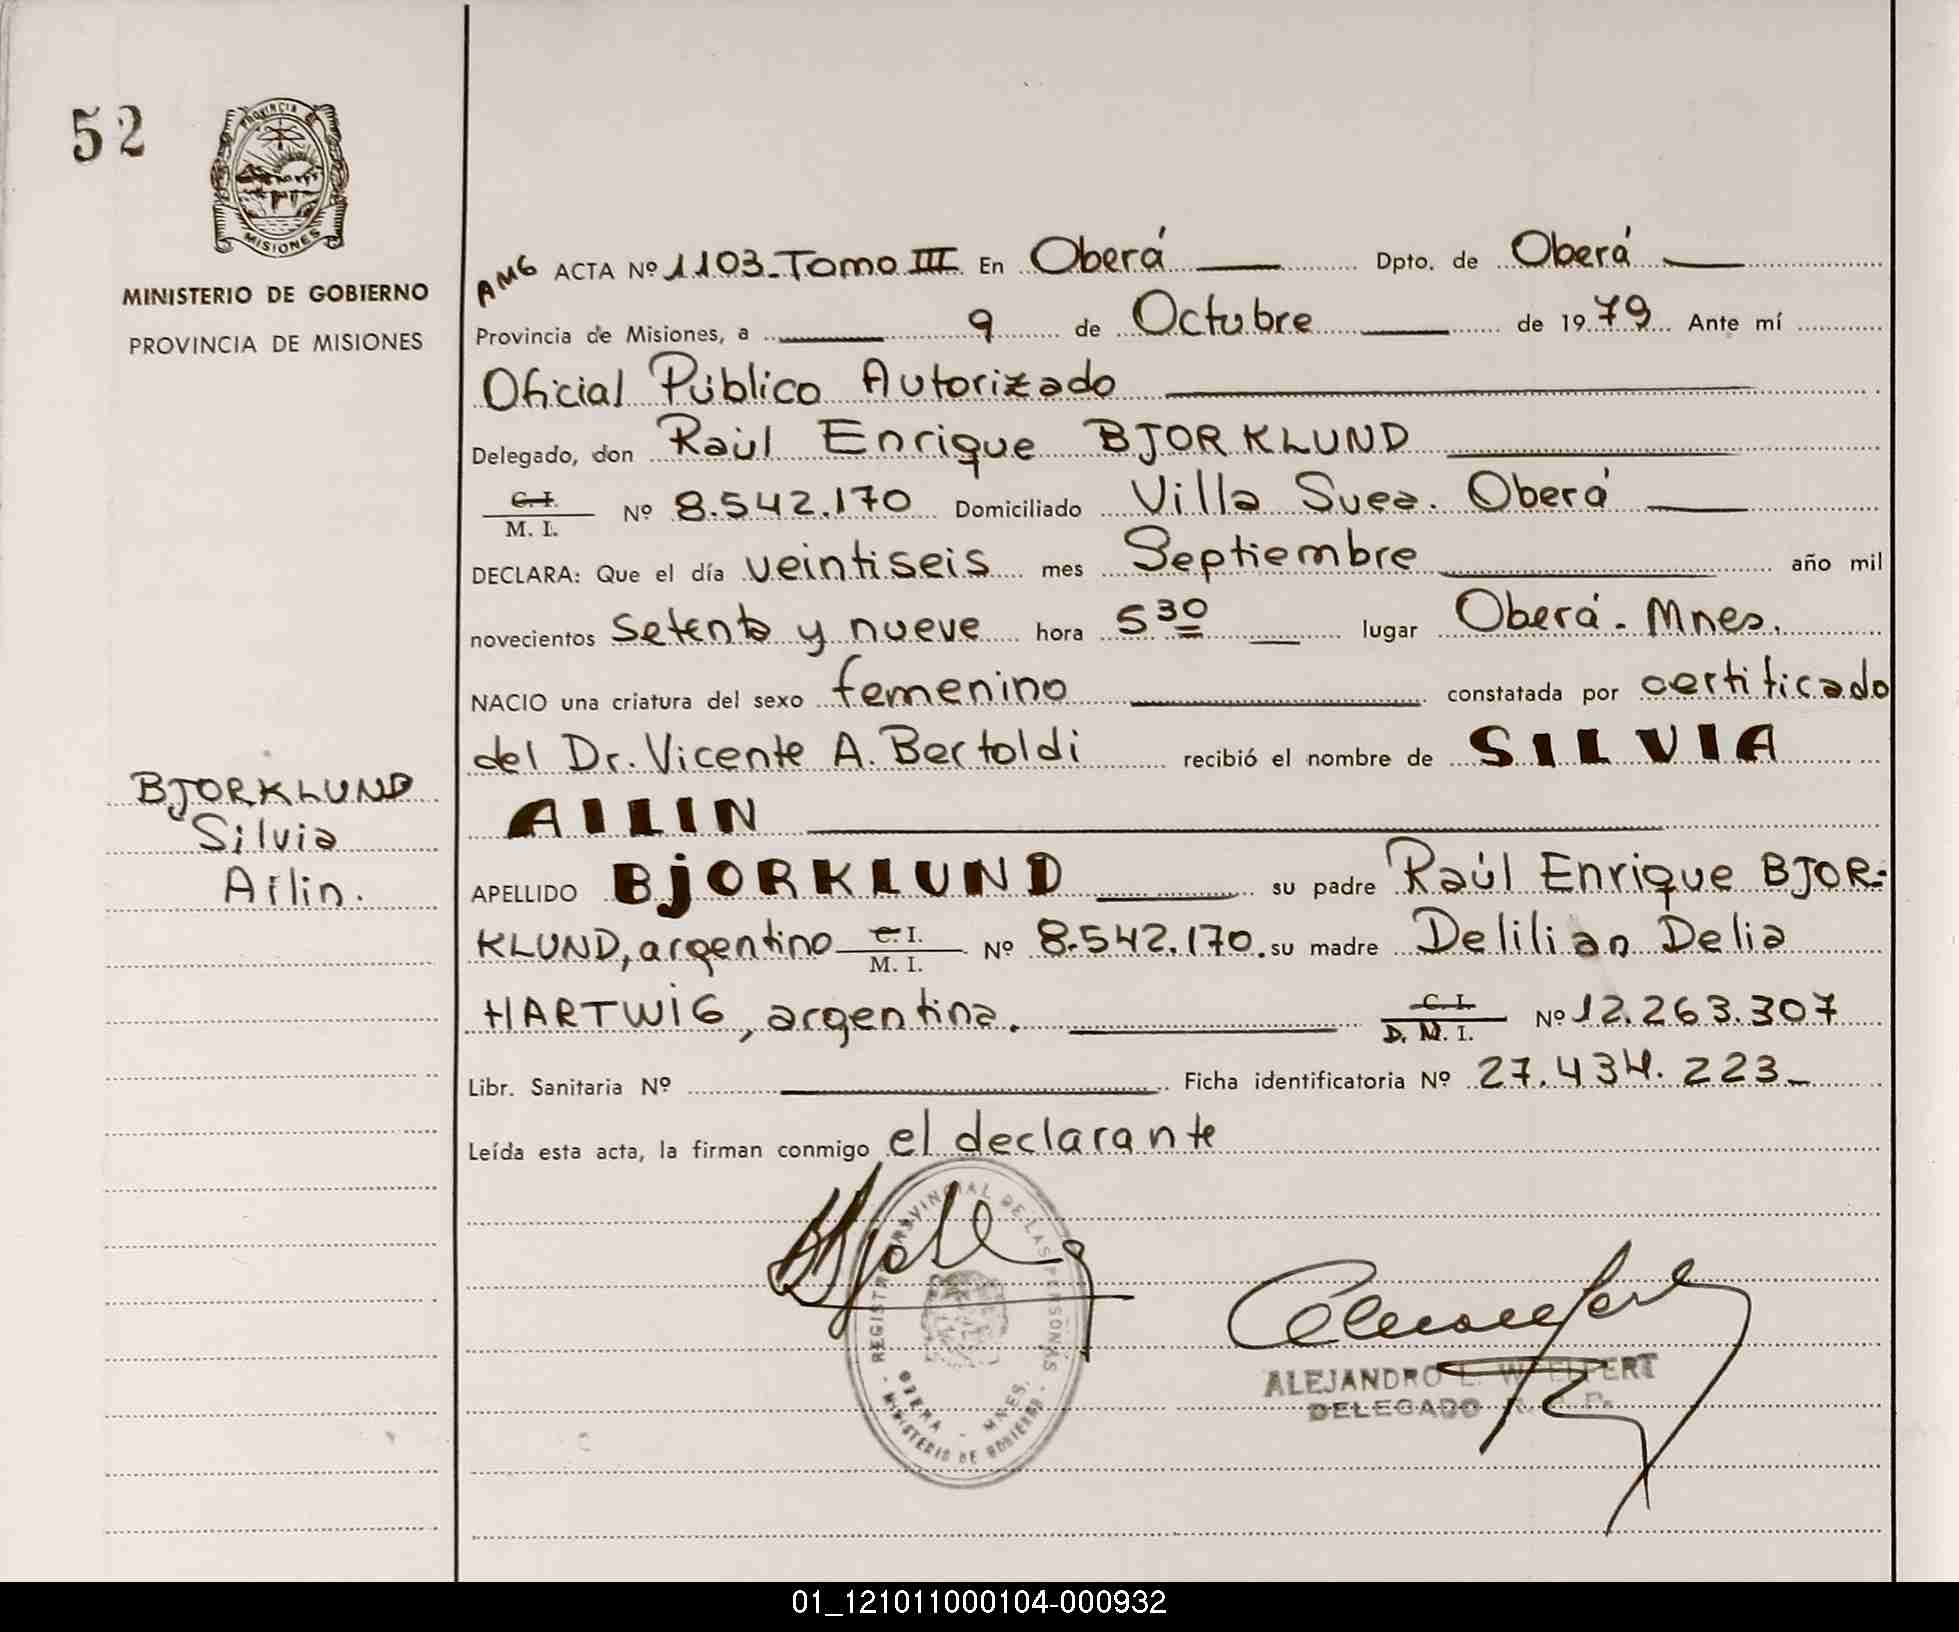 52
PROVINCIA DE
MISIONES
MINISTERIO DE GOBIERNO
PROVINCIA DE MISIONES
BJORKLUND
Silvia
Ailin.
AMG ACTA Nº 1103-Tomo III En Oberá Dpto. de Oberá
Provincia de Misiones, a 9 de Octubre de 1979 Ante mí
Oficial Público Autorizado
Delegado, don Raúl Enrique BJORKLUND
C. I.
M. I. Nº 8.542.170 Domiciliado Villa Suea. Oberá
DECLARA: Que el día veintiseis mes Septiembre año mil
novecientos setenta y nueve hora 5 30 lugar Oberá - Mnes.
NACIO una criatura del sexo femenino constatada por certificado
del Dr. Vicente A. Bertoldi recibió el nombre de SILVIA
AILIN
APELLIDO BjORKLUND su padre Raúl Enrique BJOR-
KLUND, argentino C. I. M. I. Nº 8.542.170. su madre Delilian Delia
HARTWIG, argentina. C. I. D. N. I. Nº 12.263.307
Libr. Sanitaria Nº Ficha identificatoria Nº 27.434.223-
Leída esta acta, la firman conmigo el declarante
REGISTRO PROVINCIAL DE LAS PERSONAS
OBERA - MNES.
- MINISTERIO DE GOBIERNO -
ALEJANDRO L.
DELEGADO
01_121011000104-000932